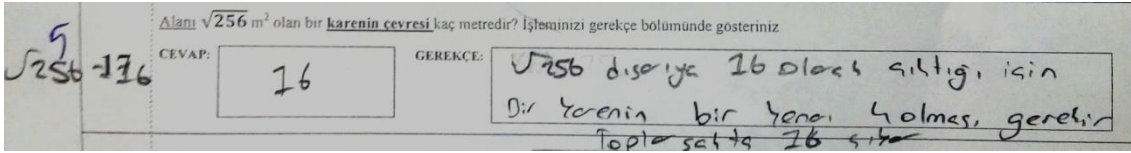 Alanı √256 m² olan bir karenin çevresi kaç metredir? İşleminizi gerekçe bölümünde gösteriniz
5
√256 - 16
CEVAP:
16
GEREKÇE:
√256 dışarıya 16 olarak çıktığı için
Bir karenin bir kenarı 4 olması gerekir
Toplarsakta 16 çıkar